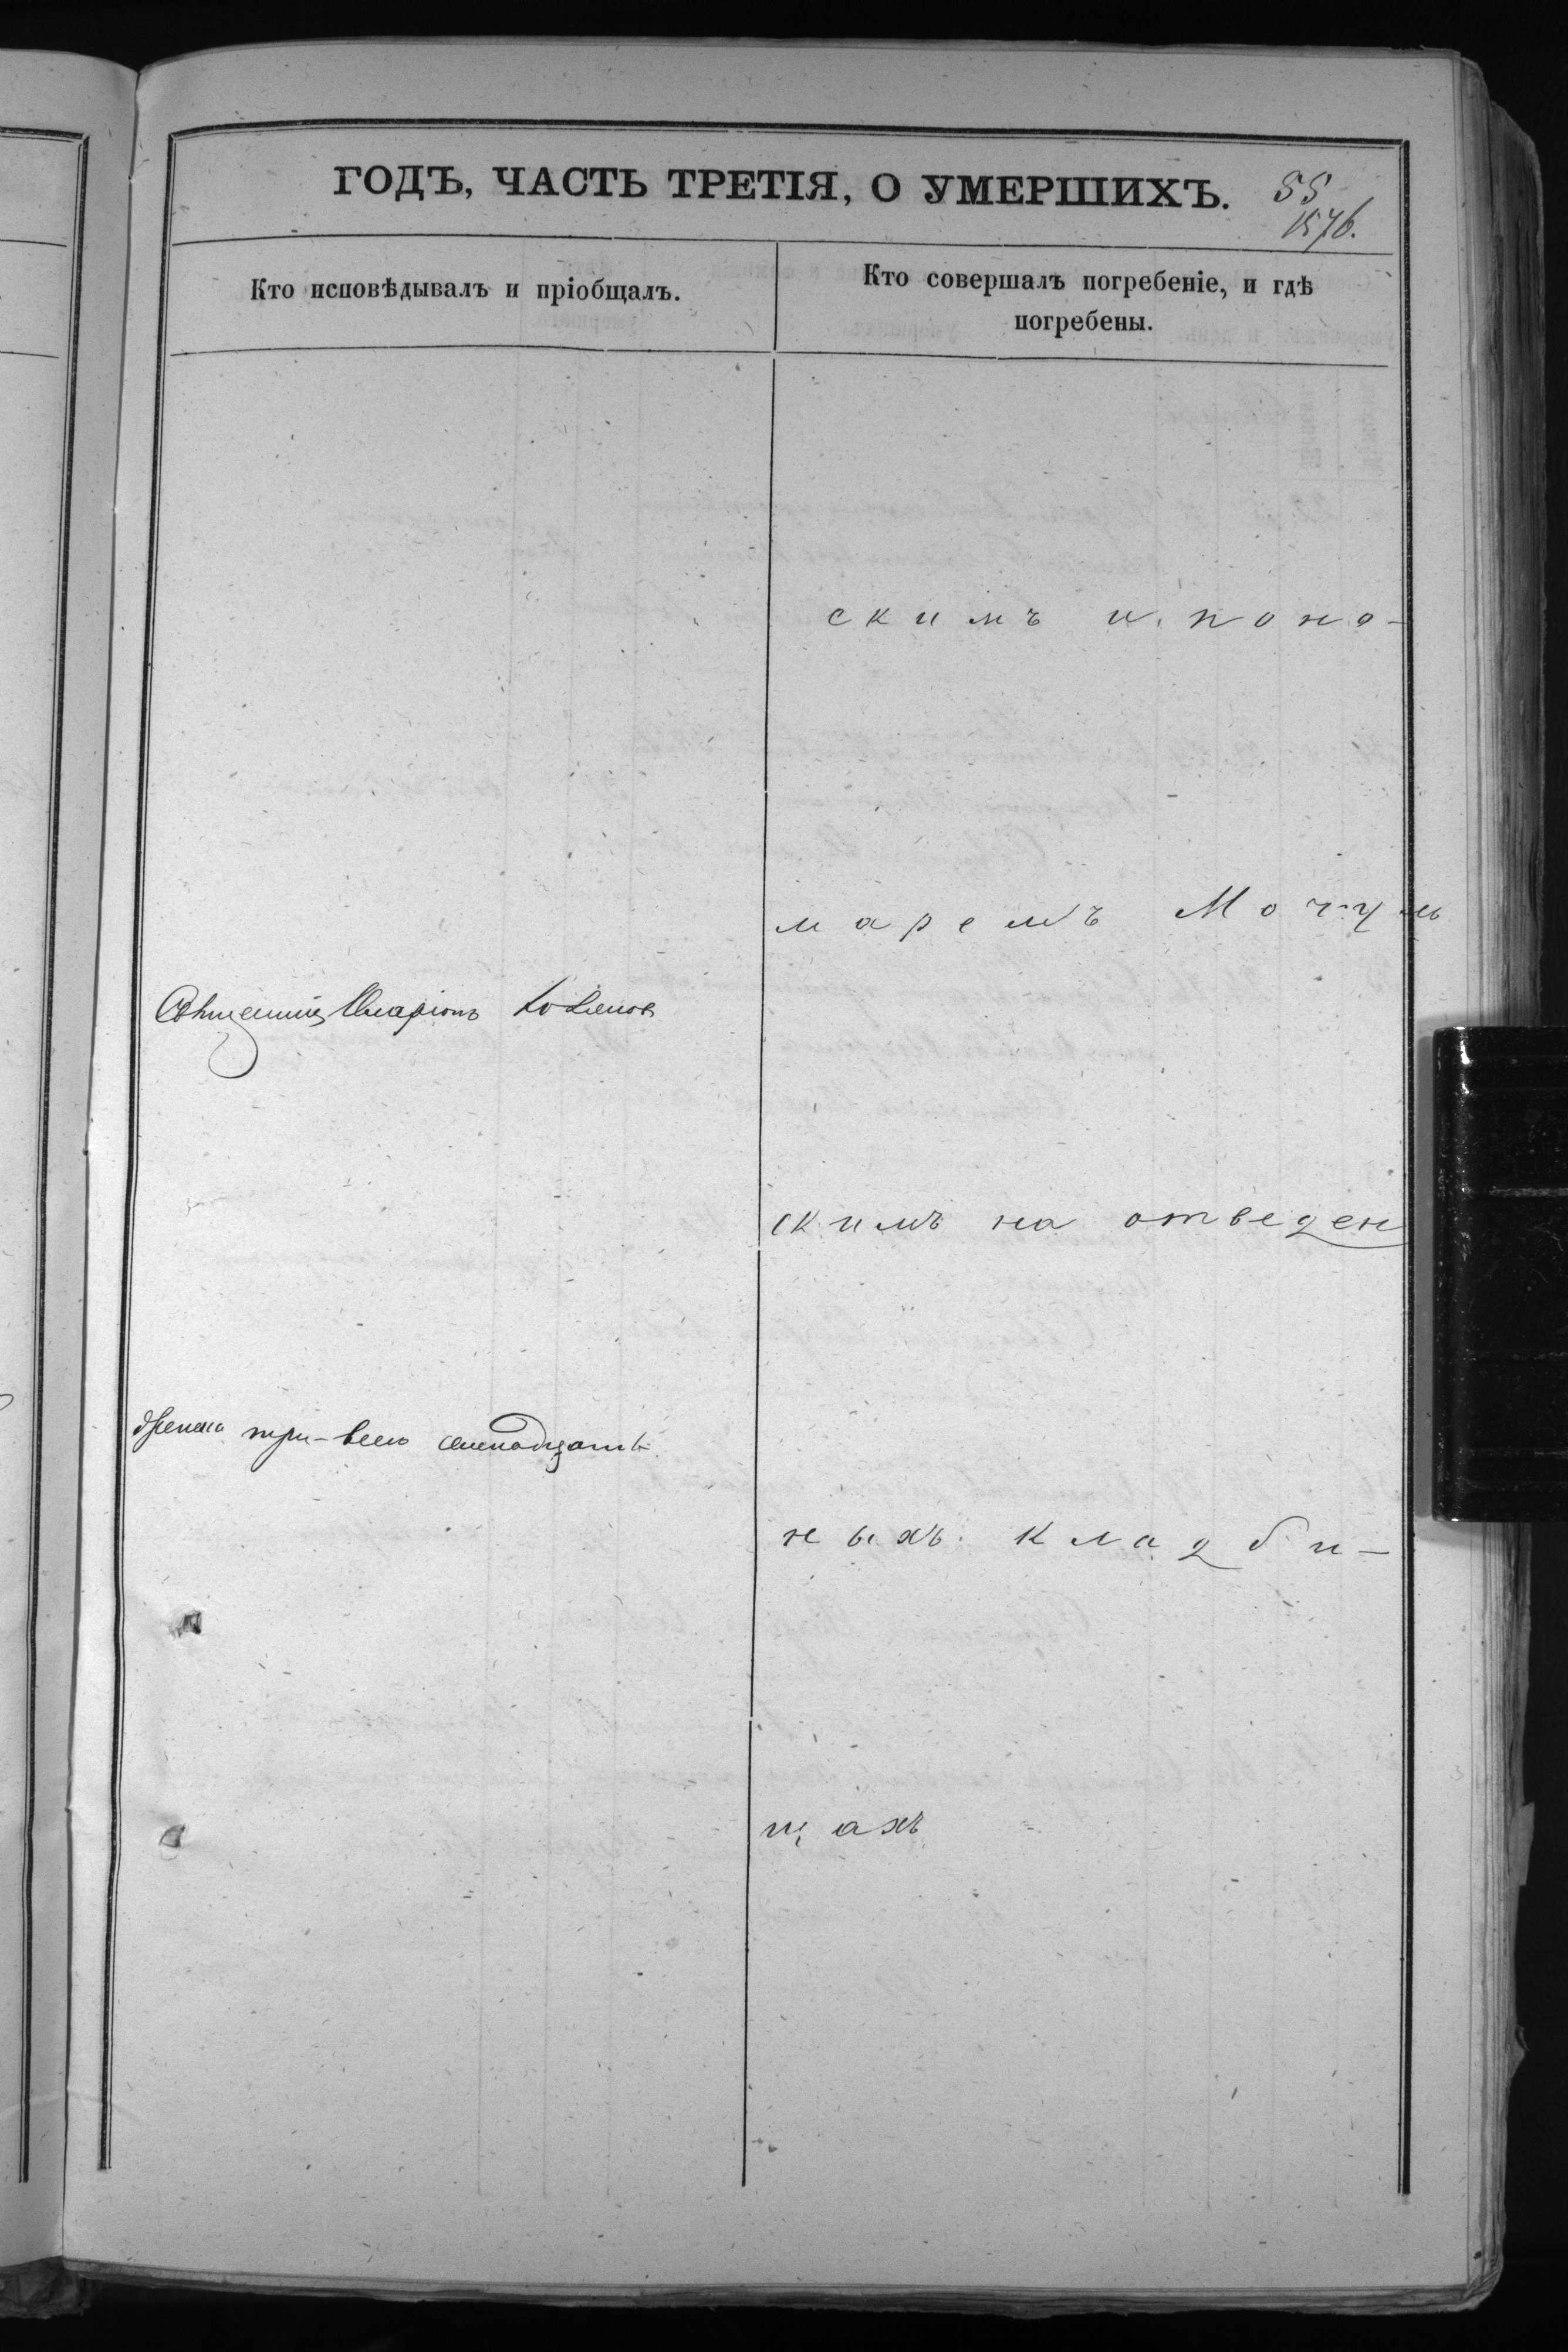 ГОДЪ, ЧАСТЬ ТРЕТІЯ, О УМЕРШИХЪ.
55
1576.
Кто исповѣдывалъ и пріобщалъ.
Кто совершалъ погребеніе, и гдѣ
погребены.
скимъ и поно-
маремъ Мочуль
Священникъ Иларіонъ
скимъ на отведен
три-всего семнадцать
ныхъ кладби-
щахъ